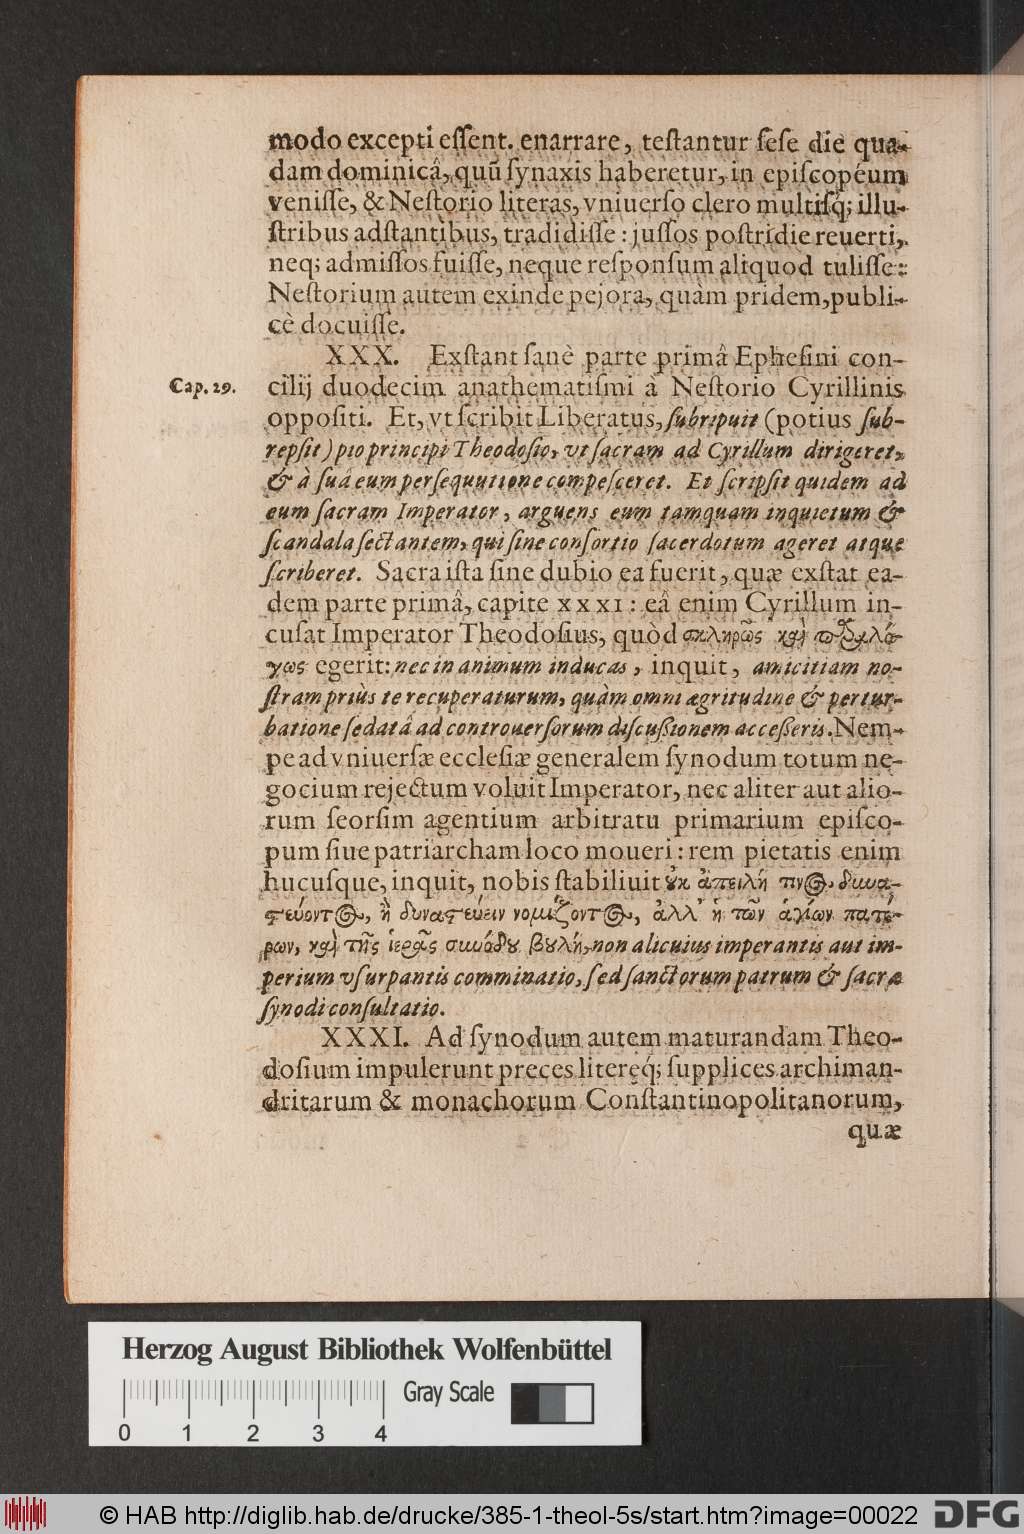 modo excepti eſſent. enarrare, teſtantur ſeſe die qua-
dam dominicâ, quũ ſynaxis haberetur, in epiſcopéum
veniſſe, & Neſtorio literas, vniuerſo clero multiſq; illu-
ſtribus adſtantibus, tradidiſſe : juſſos poſtridie reuerti,
neq; admiſſos fuiſſe, neque reſponſum aliquod tuliſſe:
Neſtorium autem exinde pejora, quàm pridem, publi-
cè docuiſſe.
XXX. Exſtant ſanè parte primâ Epheſini con-
Cap. 29.
cilij duodecim anathematiſmi à Neſtorio Cyrillinis
oppoſiti. Et, vt ſcribit Liberatus, ſubripuit (potius ſub-
repſit) pio principi Theodoſio, vt ſacram ad Cyrillum dirigeret,
& à ſuâ eum perſequutione compeſceret. Et ſcripſit quidem ad
eum ſacram Imperator, arguens eum tamquam inquietum &
ſcandala ſectantem, qui ſine conſortio ſacerdotum ageret atque
ſcriberet. Sacra iſta ſine dubio ea fuerit, quæ exſtat ea-
dem parte primâ, capite XXXI : eâ enim Cyrillum in-
cuſat Imperator Theodoſius, quòd σκληρῶς καὶ παραλό-
γως egerit: nec in animum inducas, inquit, amicitiam no-
ſtram priùs te recuperaturum, quàm omni ægritudine & pertur-
batione ſedatâ ad controuerſorum diſcußionem acceßeris. Nem-
pe ad vniuerſæ eccleſiæ generalem ſynodum totum ne-
gocium rejectum voluit Imperator, nec aliter aut alio-
rum ſeorſim agentium arbitratu primarium epiſco-
pum ſiue patriarcham loco moueri : rem pietatis enim
hucuſque, inquit, nobis ſtabiliuit οὐκ ἀπειλή τινος δυνα-
στεύοντος, ἢ δυναστεύειν νομίζοντος, ἀλλ' ἡ τῶν ἁγίων πατέ-
ρων, καὶ τῆς ἱερᾶς συνόδου βουλή, non alicuius imperantis aut im-
perium vſurpantis comminatio, ſed ſanctorum patrum & ſacræ
ſynodi conſultatio.
XXXI. Ad ſynodum autem maturandam Theo-
doſium impulerunt preces literęq́; ſupplices archiman-
dritarum & monachorum Conſtantinopolitanorum,
quæ
Herzog August Bibliothek Wolfenbüttel
Gray Scale
0 1 2 3 4
© HAB http://diglib.hab.de/drucke/385-1-theol-5s/start.htm?image=00022
DFG